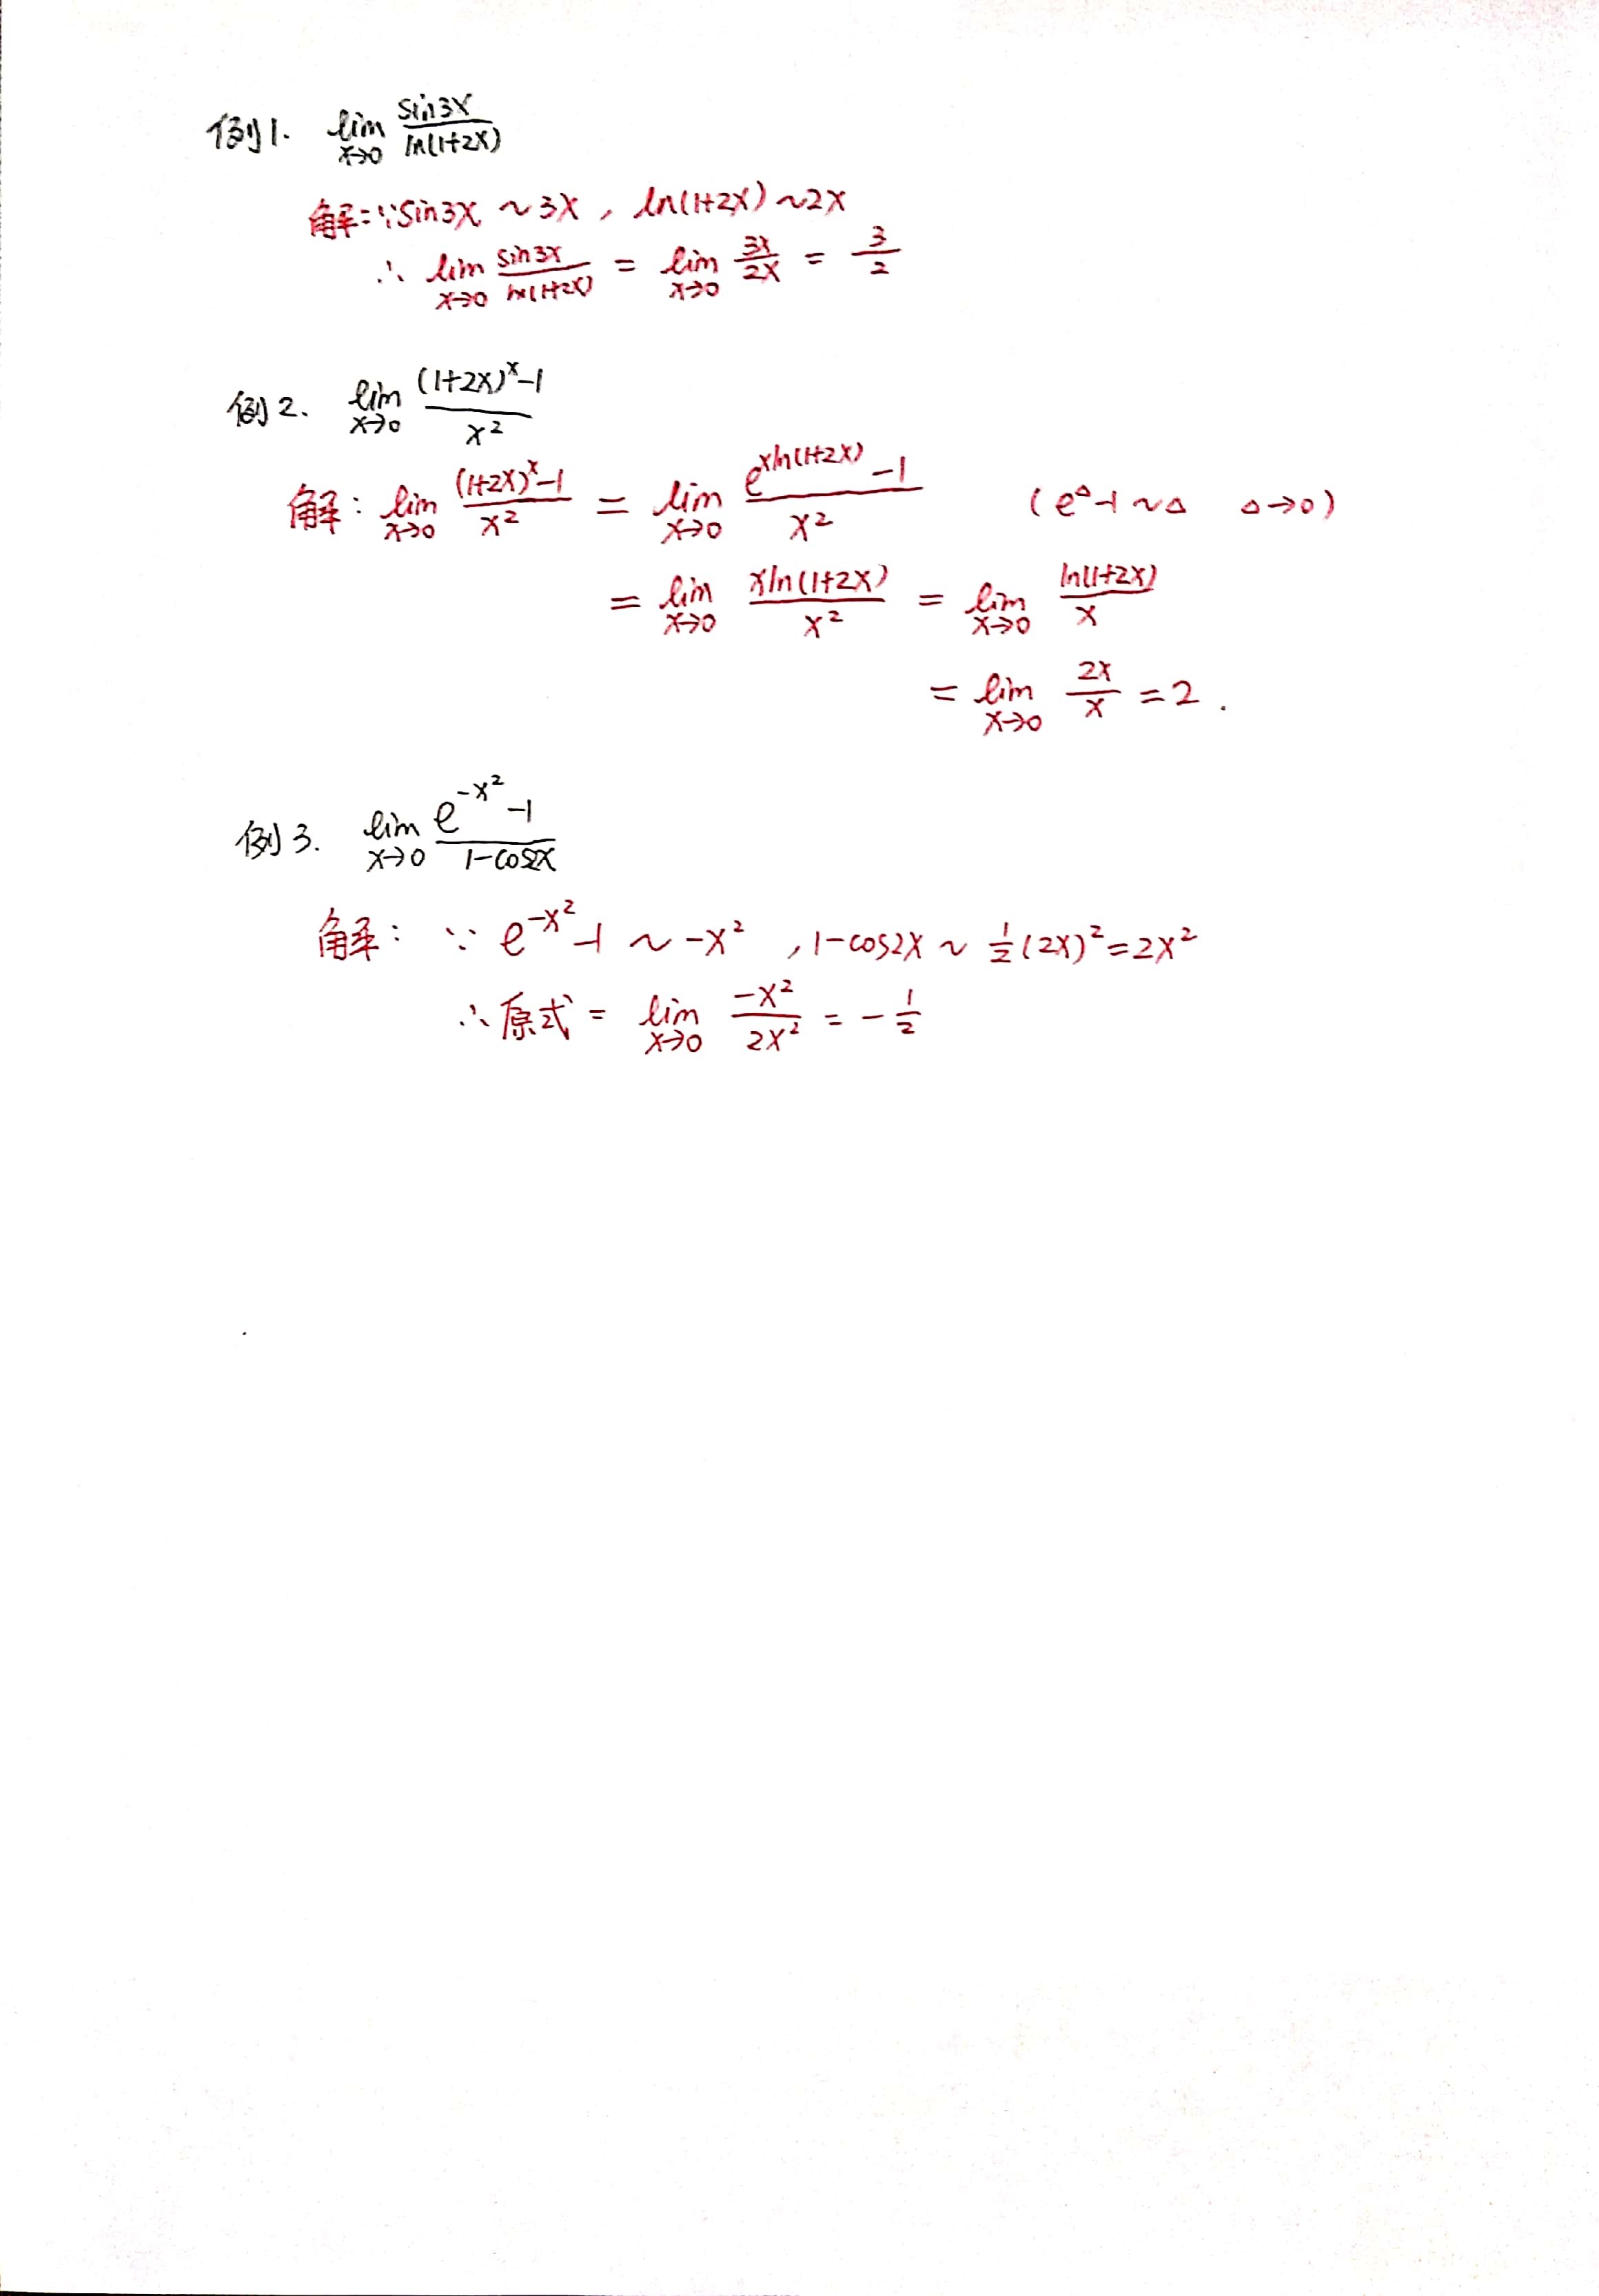 例1. lim_{x→0} \frac{sin3x}{ln(1+2x)}
解:∵sin3x ~ 3x , ln(1+2x) ~ 2x
∴ lim_{x→0} \frac{sin3x}{ln(1+2x)} = lim_{x→0} \frac{3x}{2x} = \frac{3}{2}
例2. lim_{x→0} \frac{(1+2x)^x-1}{x^2}
解: lim_{x→0} \frac{(1+2x)^x-1}{x^2} = lim_{x→0} \frac{e^{xln(1+2x)}-1}{x^2} (e^△-1 ~ △ △→0)
= lim_{x→0} \frac{xln(1+2x)}{x^2} = lim_{x→0} \frac{ln(1+2x)}{x}
= lim_{x→0} \frac{2x}{x} = 2 .
例3. lim_{x→0} \frac{e^{-x^2}-1}{1-cos2x}
解: ∵ e^{-x^2}-1 ~ -x^2 , 1-cos2x ~ \frac{1}{2}(2x)^2=2x^2
∴原式 = lim_{x→0} \frac{-x^2}{2x^2} = -\frac{1}{2}